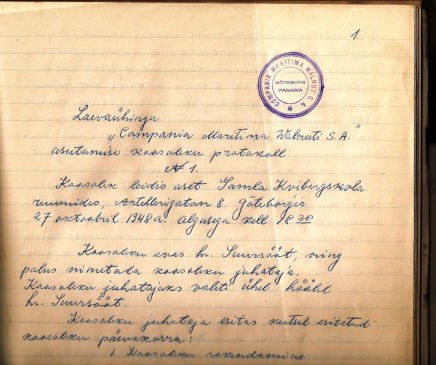 1.
COMPANIA MARITIMA WALNUT S.A.
GÖTEBORG
PANAMA
Laevaühingu
„Compania Maritima Walnuti S.A."
asutamise koosoleku protokoll
№ 1.
Koosolek leidis aset Gamla Kvibergskola
ruumides, Artillerigatan 8. Göteborgis
27 oktoobril 1948a. Algusega kell 18 30
Koosoleku avas hr. Suursööt, ning
palus nimetada koosoleku juhataja.
Koosoleku juhatajaks valiti ühel häälel
hr. Suursööt.
Koosoleku juhataja esitas kutsel esitatud
koosoleku päevakorra:
1. Koosoleku rakendamine